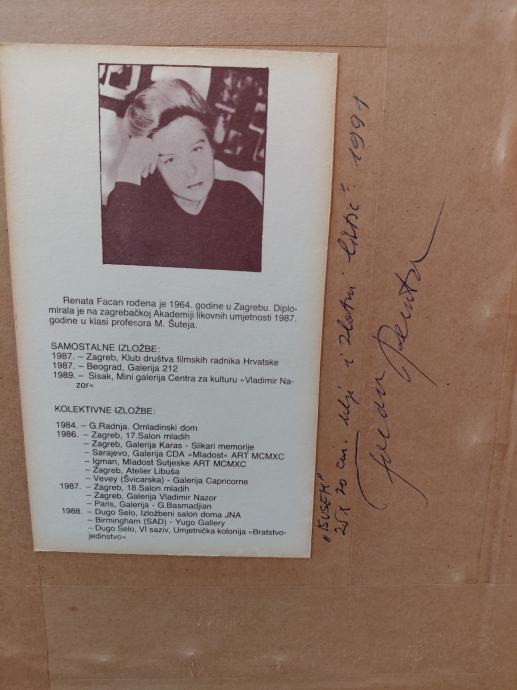 Renata Facan rođena je 1964. godine u Zagrebu. Diplo-
mirala je na zagrebačkoj Akademiji likovnih umjetnosti 1987.
godine u klasi profesora M. Šuteja.
SAMOSTALNE IZLOŽBE:
1987. – Zagreb, Klub društva filmskih radnika Hrvatske
1987. – Beograd, Galerija 212
1989. – Sisak, Mini galerija Centra za kulturu »Vladimir Na-
zor«
KOLEKTIVNE IZLOŽBE:
1984. – G.Radnja. Omladinski dom
1986. – Zagreb, 17.Salon mladih
– Zagreb, Galerija Karas - Slikari memorije
– Sarajevo, Galerija CDA »Mladost» ART MCMXC
– Igman, Mladost Sutjeske ART MCMXC
– Zagreb, Atelier Libuša
– Vevey (Švicarska) - Galerija Capricorne
1987. – Zagreb, 18.Salon mladih
– Zagreb, Galerija Vladimir Nazor
– Paris, Galerija - G.Basmadjian
1988. – Dugo Selo, Izložbeni salon doma JNA
– Birmingham (SAD) - Yugo Gallery
– Dugo Selo, VI saziv, Umjetnička kolonija »Bratstvo-
jedinstvo«
25 x 20 cm. ulje i zlatni listić 1991
Facan Renata